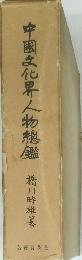 中國文化界人物總鑑
橋川時雄纂